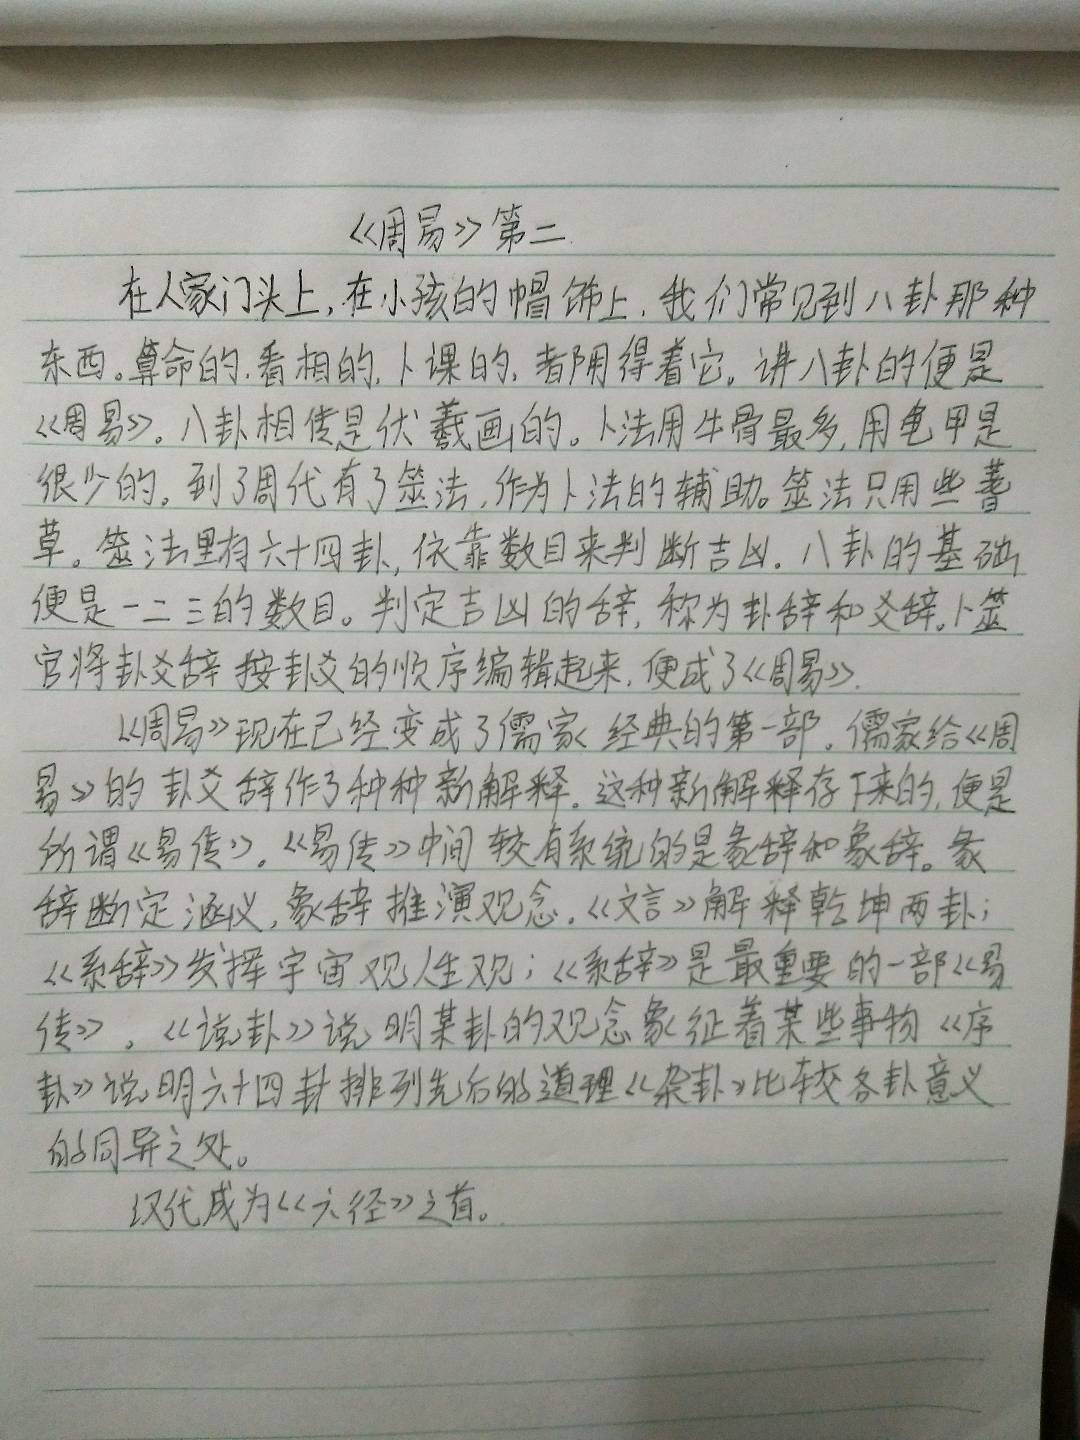 《周易》第二
在人家门头上,在小孩的帽饰上,我们常见到八卦那种
东西。算命的,看相的,卜课的,都用得着它。讲八卦的便是
《周易》。八卦相传是伏羲画的。卜法用牛骨最多,用龟甲是
很少的。到了周代有了筮法,作为卜法的辅助。筮法只用些蓍
草。筮法里有六十四卦,依靠数目来判断吉凶。八卦的基础
便是一二三的数目。判定吉凶的辞,称为卦辞和爻辞。卜筮
官将卦爻辞按卦爻的顺序编辑起来,便成了《周易》.
《周易》现在已经变成了儒家经典的第一部。儒家给《周
易》的卦爻辞作了种种新解释。这种新解释存下来的,便是
所谓《易传》。《易传》中间较有系统的是彖辞和象辞。彖
辞断定涵义,象辞推演观念。《文言》解释乾坤两卦;
《系辞》发挥宇宙观人生观;《系辞》是最重要的一部《易
传》。《说卦》说明某卦的观念象征着某些事物《序
卦》说明六十四卦排列先后的道理《杂卦》比较各卦意义
的同异之处。
汉代成为《六径》之首。